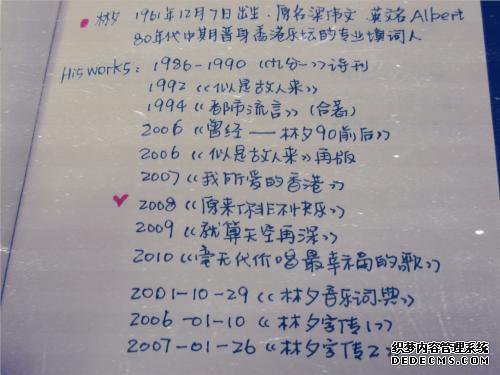 林夕 1961年12月7日出生. 原名梁伟文 英文名Albert
80年代中期晋身香港乐坛的专业填词人
His works: 1986-1990《九分一》诗刊
1992《似是故人来》
1994《都市流言》(合著)
2006《曾经——林夕90前后》
2006《似是故人来》再版
2007《我所爱的香港》
2008《原来你非不快乐》
2009《就算天空再深》
2010《毫无代价唱最幸福的歌》
2001-10-29《林夕音乐词典》
2006-01-10《林夕字传1》
2007-01-26《林夕字传2
织梦内容管理系统
DEDECMS.COM